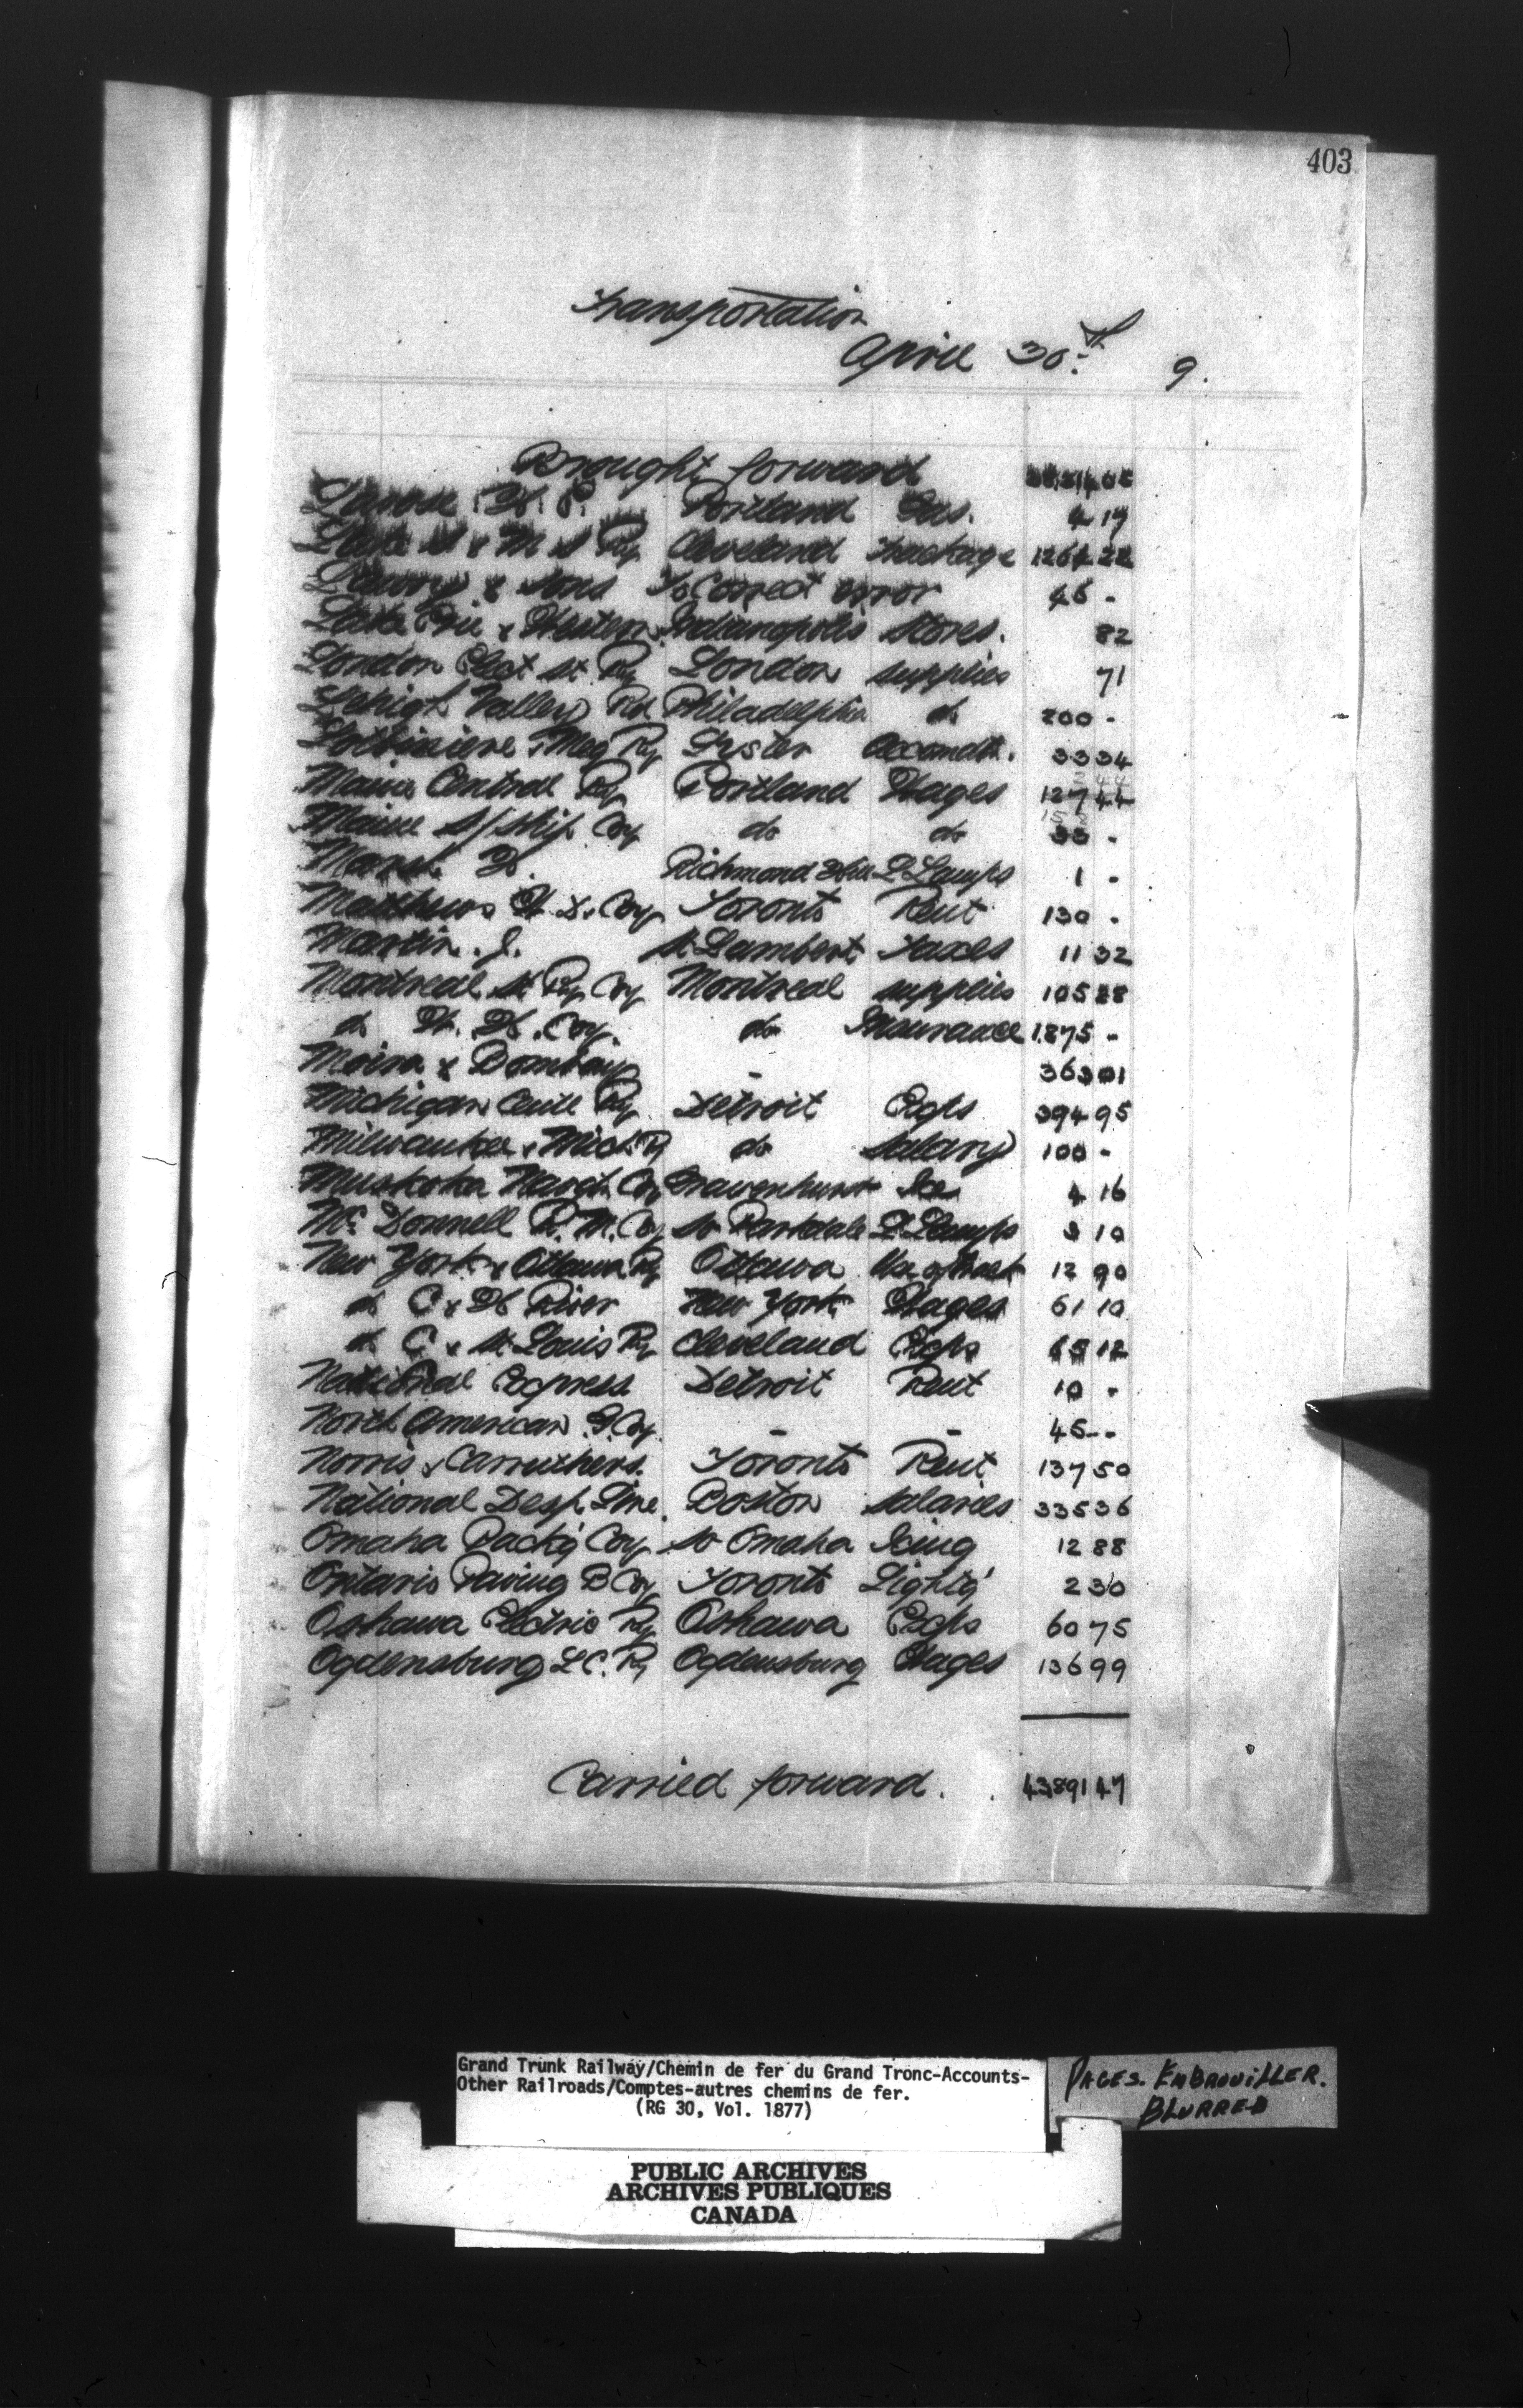 403
Transportation
April 30th 9.
Brought forward
H. P. Portland Gas. 4 17
Lake S & M S Ry Cleveland Trackage 1264 22
& Sons To Correct error 45 -
Lake Erie & Western Indianapolis Stores. 82
London Elect St Ry London supplies 71
Lehigh Valley Rd Philadelphia do 200 -
Lotbiniere & Meg Ry Lyster Accomdtn. 33 34
Maine Central Ry Portland Wages 127 44
Maine S/Ship Coy do do 33 -
Marsh H. Richmond Hill S. Lamps 1 -
Matthews W. D. & Coy Toronto Rent 130 -
Martin. J. St Lambert Taxes 11 32
Montreal St Ry Coy Montreal supplies 105 28
do W. H. Coy. do Insurance 1875 -
Moira & Bombay - 363 01
Michigan Centl Ry Detroit Exps 394 95
Milwaukee & Mich Ry do Salary 100 -
Muskoka Navgtn Coy Gravenhurst Ice 4 16
Mc Donnell R. M. Coy So Parkdale S. Lamps 3 10
New York & Ottawa Ry Ottawa Use of 12 90
do C & H River New York Wages 61 10
do C & St Louis Ry Cleveland Exps 65 12
National Express Detroit Rent 10 -
North American G. Coy. - - 45 --
Norris & Carruthers. Toronto Rent 137 50
National Desp. Line. Boston Salaries 335 36
Omaha Packg Coy So Omaha Icing 12 88
Ontario Paving B Coy Toronto Lightg 2 30
Oshawa Electric Ry Oshawa Exps 60 75
Ogdensburg L C. Ry Ogdensburg Wages 136 99
Carried forward. 43891 47
Grand Trunk Railway/Chemin de fer du Grand Tronc-Accounts-
Other Railroads/Comptes-autres chemins de fer.
(RG 30, Vol. 1877)
PAGES. EMBROUILLER.
BLURRED
PUBLIC ARCHIVES
ARCHIVES PUBLIQUES
CANADA